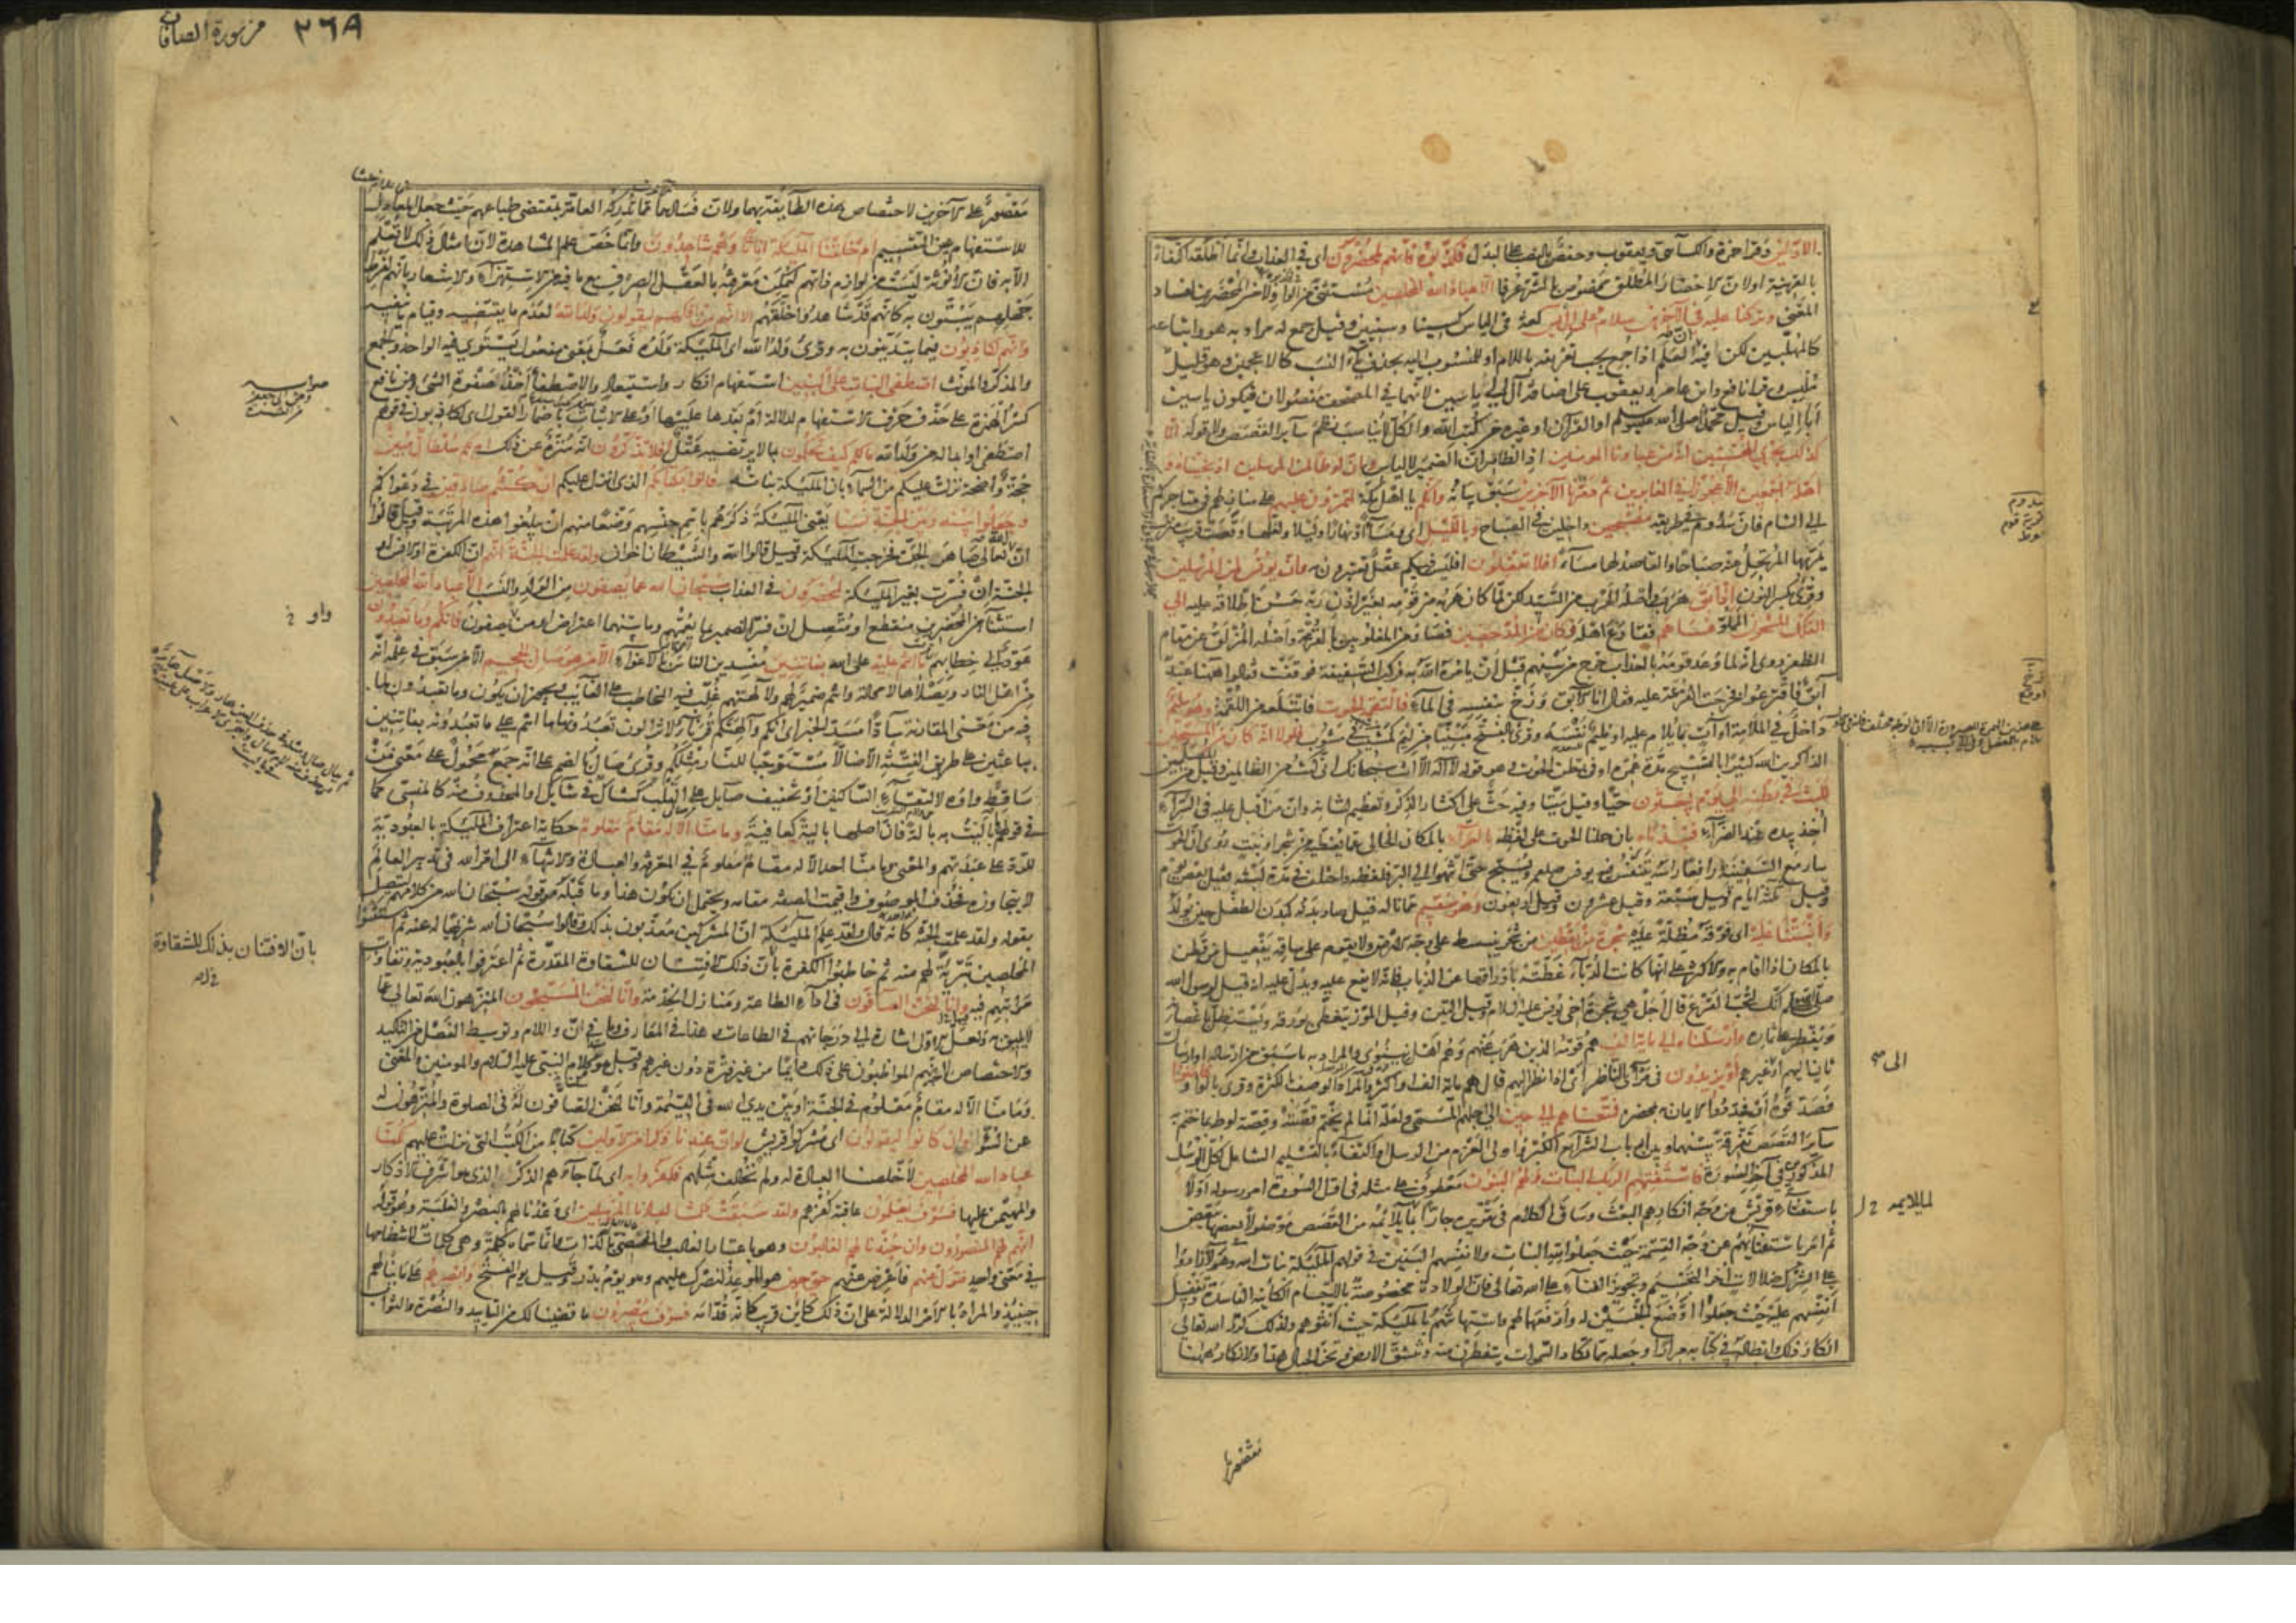 الاولين وقرا حمزة والكسائي ويعقوب وحفص بالنصب على البدل فكذبوه فانهم لمحضرون اى في العذاب وانما اطلقه اكتفاء
بالقرينة اولان الاحضار المطلق مخصوص بالشر عرفا الا عباد الله المخلصين مستثنى من الواو لا من المحضرين لفساد
المعنى وتركنا عليه في الآخرين سلام على الياسين لغة في الياس كسينا وسينين وقيل جمع له مراد به هو واتباعه
كالمهلبين لكن فيه ان العلم اذا جمع يجب تعريفه باللام او للمنسوب اليه بحذف ياء النسب كالاعجمين وهو قليل
ملبس وقرا نافع وابن عامر ويعقوب على اضافة آل الى ياسين لانهما في المصحف مفصولان فيكون ياسين
ابا الياس وقيل محمد صلى الله عليه وسلم او القرآن او غيره من كتب الله والكل لا يناسب نظم سائر القصص ولا قوله انا
كذلك نجزي المحسنين انه من عبادنا المومنين اذ الظاهر ان الضمير لالياس وان لوطا لمن المرسلين اذ نجيناه و
اهله اجمعين الا عجوزا في الغابرين ثم دمرنا الآخرين سبق بيانه وانكم يا اهل مكة لتمرون عليهم على منازلهم في متاجركم
الى الشام فان سدوم في طريقه مصبحين داخلين في الصباح وبالليل اى ومساء او نهارا وليلا ولعلها وقعت قريب منزل
يمر بها المرتحل عنه صباحا والقاصد لها مساء افلا تعقلون افليس فيكم عقل تعتبرون به وان يونس لمن المرسلين
وقرئ بكسر النون اذ ابق هرب واصله الهرب من السيد لكن لما كان هربه من قومه بغير اذن ربه حسن اطلاقه عليه الى
الفلك المشحون المملو فساهم فقارع اهله فكان من المدحضين فصار من المغلوبين بالقرعة واصله المزلق عن مقام
الظفر روى انه لما وعد قومه بالعذاب خرج من بينهم قبل ان يامره الله به فركب السفينة فوقفت فقالوا ههنا عبد
آبق فاقترعوا فخرجت القرعة عليه فقال انا الآبق ورمى بنفسه في الماء فالتقمه الحوت فابتلعه من اللقمة وهو مليم
داخل في الملامة او آت بما يلام عليه او مليم نفسه وقرئ بالفتح مبنيا من ليم كمشيب في مشوب فلولا انه كان من المسبحين
الذاكرين الله كثيرا بالتسبيح مدة عمره او في بطن الحوت وهو قوله لا اله الا انت سبحانك انى كنت من الظالمين وقيل من المصلين
للبث في بطنه الى يوم يبعثون حيا وقيل ميتا وفيه حث على اكثار الذكر وتعظيم لشانه وان من اقبل عليه في السراء
اخذ بيده عند الضراء فنبذناه بان حملنا الحوت على لفظه بالعراء بالمكان الخالى عما يغطيه من شجر او نبت روى ان الحوت
سار مع السفينة رافعا راسه يتنفس فيه يونس ويسبح حتى انتهوا الى البر فلفظه واختلف في مدة لبثه فقيل بعض يوم
وقيل ثلثة ايام وقيل سبعة وقيل عشرون وقيل اربعون وهو سقيم مما ناله قيل صار بدنه كبدن الطفل حين يولد
وانبتنا عليه اى فوقه مظلة عليه شجرة من يقطين من شجر ينبسط على وجه الارض ولا يقوم على ساقه يفعيل من قطن
بالمكان اذا اقام به والاكثر على انها كانت الدباء غطته باوراقها عن الذباب فانه لا يقع عليه ويدل عليه انه قيل لرسول الله
صلى الله عليه وسلم انك لتحب القرع قال اجل هي شجرة اخى يونس عليه السلام وقيل التين وقيل الموز يتغطى بورقه ويستظل باغصانه
ويفطر على ثماره وارسلناه الى مائة الف هم قومه الذين هرب عنهم وهم اهل نينوى والمراد به ما سبق من ارساله او ارسال
ثان اليهم او غيرهم او يزيدون في مرآى الناظر اى اذا نظر اليهم قال هم مائة الف او اكثر والمراد الوصف بالكثرة وقرئ بالواو فامنوا
فصدقوه او فجددوا الايمان به بمحضره فمتعناهم الى حين الى اجلهم المسمى ولعله انما لم يختم قصته وقصة لوط بما ختم به
سائر القصص تفرقة بينهما وبين ارباب الشرائع الكبر واولى العزم من الرسل او اكتفاء بالتسليم الشامل لكل الرسل
المذكورين في آخر السورة فاستفتهم الربك البنات ولهم البنون معطوف على مثله في اول السورة امر رسوله اولا
باستفتاء قريش عن وجه انكارهم البعث وساق الكلام في تقريره جارا لما يلائمه من القصص موصولا بعضها ببعض
ثم امر باستفتائهم عن وجه القسمة حيث جعلوا لله البنات ولانفسهم البنين في قولهم الملئكة بنات الله وهؤلاء زادوا
على الشرك ضلالات اخر التجسيم وتجويز الفناء على الله تعالى فان الولادة مخصوصة بالاجسام الكائنة الفاسدة وتفضيل
انفسهم عليه حيث جعلوا اوضع الجنسين له وارفعهما لهم واستهانتهم بالملئكة حيث انثوهم ولذلك كرر الله تعالى
انكار ذلك وابطاله في كتابه مرارا وجعله مما تكاد السموات يتفطرن منه وتنشق الارض وتخر الجبال هدا والانكار ههنا
سدوم
قرية قوم
لوط
الى
لما يلايمه
من سورة الصافات ٣٦٨
مقصور على الآخرين لاختصاص هذه الطائفة بهما ولان فسادهما مما تدركه العامة بمقتضى طباعهم حيث جعل المعادل
للاستفهام عن التقسيم ام خلقنا الملئكة اناثا وهم شاهدون وانما خص علم المشاهدة لان امثال ذلك لا تعلم
الا به فان الانوثة ليست من لوازم ذاتهم لتمكن معرفته بالعقل الصرف مع ما فيه من الاستهزاء والاشعار بانهم لفرط
جهلهم يبتون به كانهم قد شاهدوا خلقهم الا انهم من افكهم ليقولون ولد الله لعدم ما يقتضيه وقيام ما ينفيه
وانهم لكاذبون فيما يتدينون به وقرئ ولد الله اى الملئكة ولده فعل بمعنى مفعول يستوى فيه الواحد والجمع
والمذكر والمونث اصطفى البنات على البنين استفهام انكار واستبعاد والاصطفاء اخذ صفوة الشئ وعن نافع
كسر الهمزة على حذف حرف الاستفهام لدلالة ام بعدها عليها او على الاثبات باضمار القول اى لكاذبون في قولهم
اصطفى او ابداله من ولد الله ما لكم كيف تحكمون بما لا يرتضيه عقل افلا تذكرون انه منزه عن ذلك ام لكم سلطان مبين
حجة واضحة نزلت عليكم من السماء بان الملئكة بناته فاتوا بكتابكم الذى انزل عليكم ان كنتم صادقين في دعواكم
وجعلوا بينه وبين الجنة نسبا يعنى الملئكة ذكرهم باسم جنسهم وضعا منهم ان يبلغوا هذه المرتبة وقيل قالوا
ان الله تعالى صاهر الجن فخرجت الملئكة وقيل قالوا الله والشيطان اخوان ولقد علمت الجنة انهم ان الكفرة او الانس او
الجنة ان فسرت بغير الملئكة لمحضرون في العذاب سبحان الله عما يصفون من الولد والنسب الا عباد الله المخلصين
استثناء من المحضرين منقطع او متصل ان فسر الضمير بما يعمهم وما بينهما اعتراض او من يصفون فانكم وما تعبدون
عود الى خطابهم ما انتم عليه على الله بفاتنين مفسدين الناس بالاغواء الا من هو صال الجحيم الا من سبق في علمه انه
من اهل النار ويصلاها لا محالة وانتم ضمير لهم ولآلهتهم غلب فيه المخاطب على الغائب ويجوز ان يكون وما تعبدون لما
فيه من معنى المقارنة سادا مسد الخبر اى انكم وآلهتكم قرناء لا تزالون تعبدونها ما انتم على ما تعبدونه بفاتنين
بباعثين على طريق الفتنة الا ضالا مستوجبا للنار مثلكم وقرئ صال بالضم على انه جمع محمول على معنى من
ساقط واوه لالتقاء الساكنين او تخفيف صائل على القلب كشاك في شايك او المحذوف منه كالمنسى كما
في قولهم ما باليت به بالة فان اصلها بالية كعافية وما منا الا له مقام معلوم حكاية اعتراف الملئكة بالعبودية
للرد على عبدتهم والمعنى وما منا احد الا له مقام معلوم في المعرفة والعبادة والانتهاء الى امر الله في تدبير العالم
لا يتجاوزه فحذف الموصوف واقيمت الصفة مقامه ويحتمل ان يكون هذا وما قبله من قوله سبحان الله من كلامهم ليتصل
بقوله ولقد علمت الجنة كانه قال ولقد علم الملئكة ان المشركين معذبون بذلك وقالوا سبحان الله تنزيها له عنه ثم استثنوا
المخلصين تبرية لهم منه ثم خاطبوا الكفرة بان ذلك الافتتان للشقاوة المقدرة ثم اعترفوا بالعبودية وتفاوت
مراتبهم فيه وانا لنحن الصافون في اداء الطاعة ومنازل الخدمة وانا لنحن المسبحون المنزهون الله تعالى عما
لا يليق به ولعل الاول اشارة الى درجاتهم في الطاعات وهذا في المعارف وما في ان واللام وتوسيط الفصل من التاكيد
والاختصاص لانهم المواظبون على ذلك دايما من غير فترة دون غيرهم وقيل هو من كلام النبى عليه السلام والمومنين والمعنى
وما منا الا له مقام معلوم في الجنة او بين يدى الله في القيمة وانا لنحن الصافون له في الصلوة والمنزهون له
عن السوء وان كانوا ليقولون اى مشركوا قريش لو ان عندنا ذكرا من الاولين كتابا من الكتب التى نزلت عليهم لكنا
عباد الله المخلصين لاخلصنا العبادة له ولم نخالف مثلهم فكفروا به اى لما جاءهم الذكر الذى هو اشرف الاذكار
والمهيمن عليها فسوف يعلمون عاقبة كفرهم ولقد سبقت كلمتنا لعبادنا المرسلين اى وعدنا لهم النصر والغلبة وهو قوله
انهم لهم المنصورون وان جندنا لهم الغالبون وهو باعتبار الغالب والمقضى بالذات وانما سماه كلمة وهى كلمات لانتظامها
في معنى واحد فتول عنهم فاعرض عنهم حتى حين هو الموعد لنصرك عليهم وهو يوم بدر وقيل يوم الفتح وابصرهم على ما ينالهم
حينئذ والمراد بالامر الدلالة على ان ذلك كائن قريب كانه قدامه فسوف يبصرون ما قضينا لك من التاييد والنصرة والثواب
واو
بان الافتتان بذلك للشقاوة